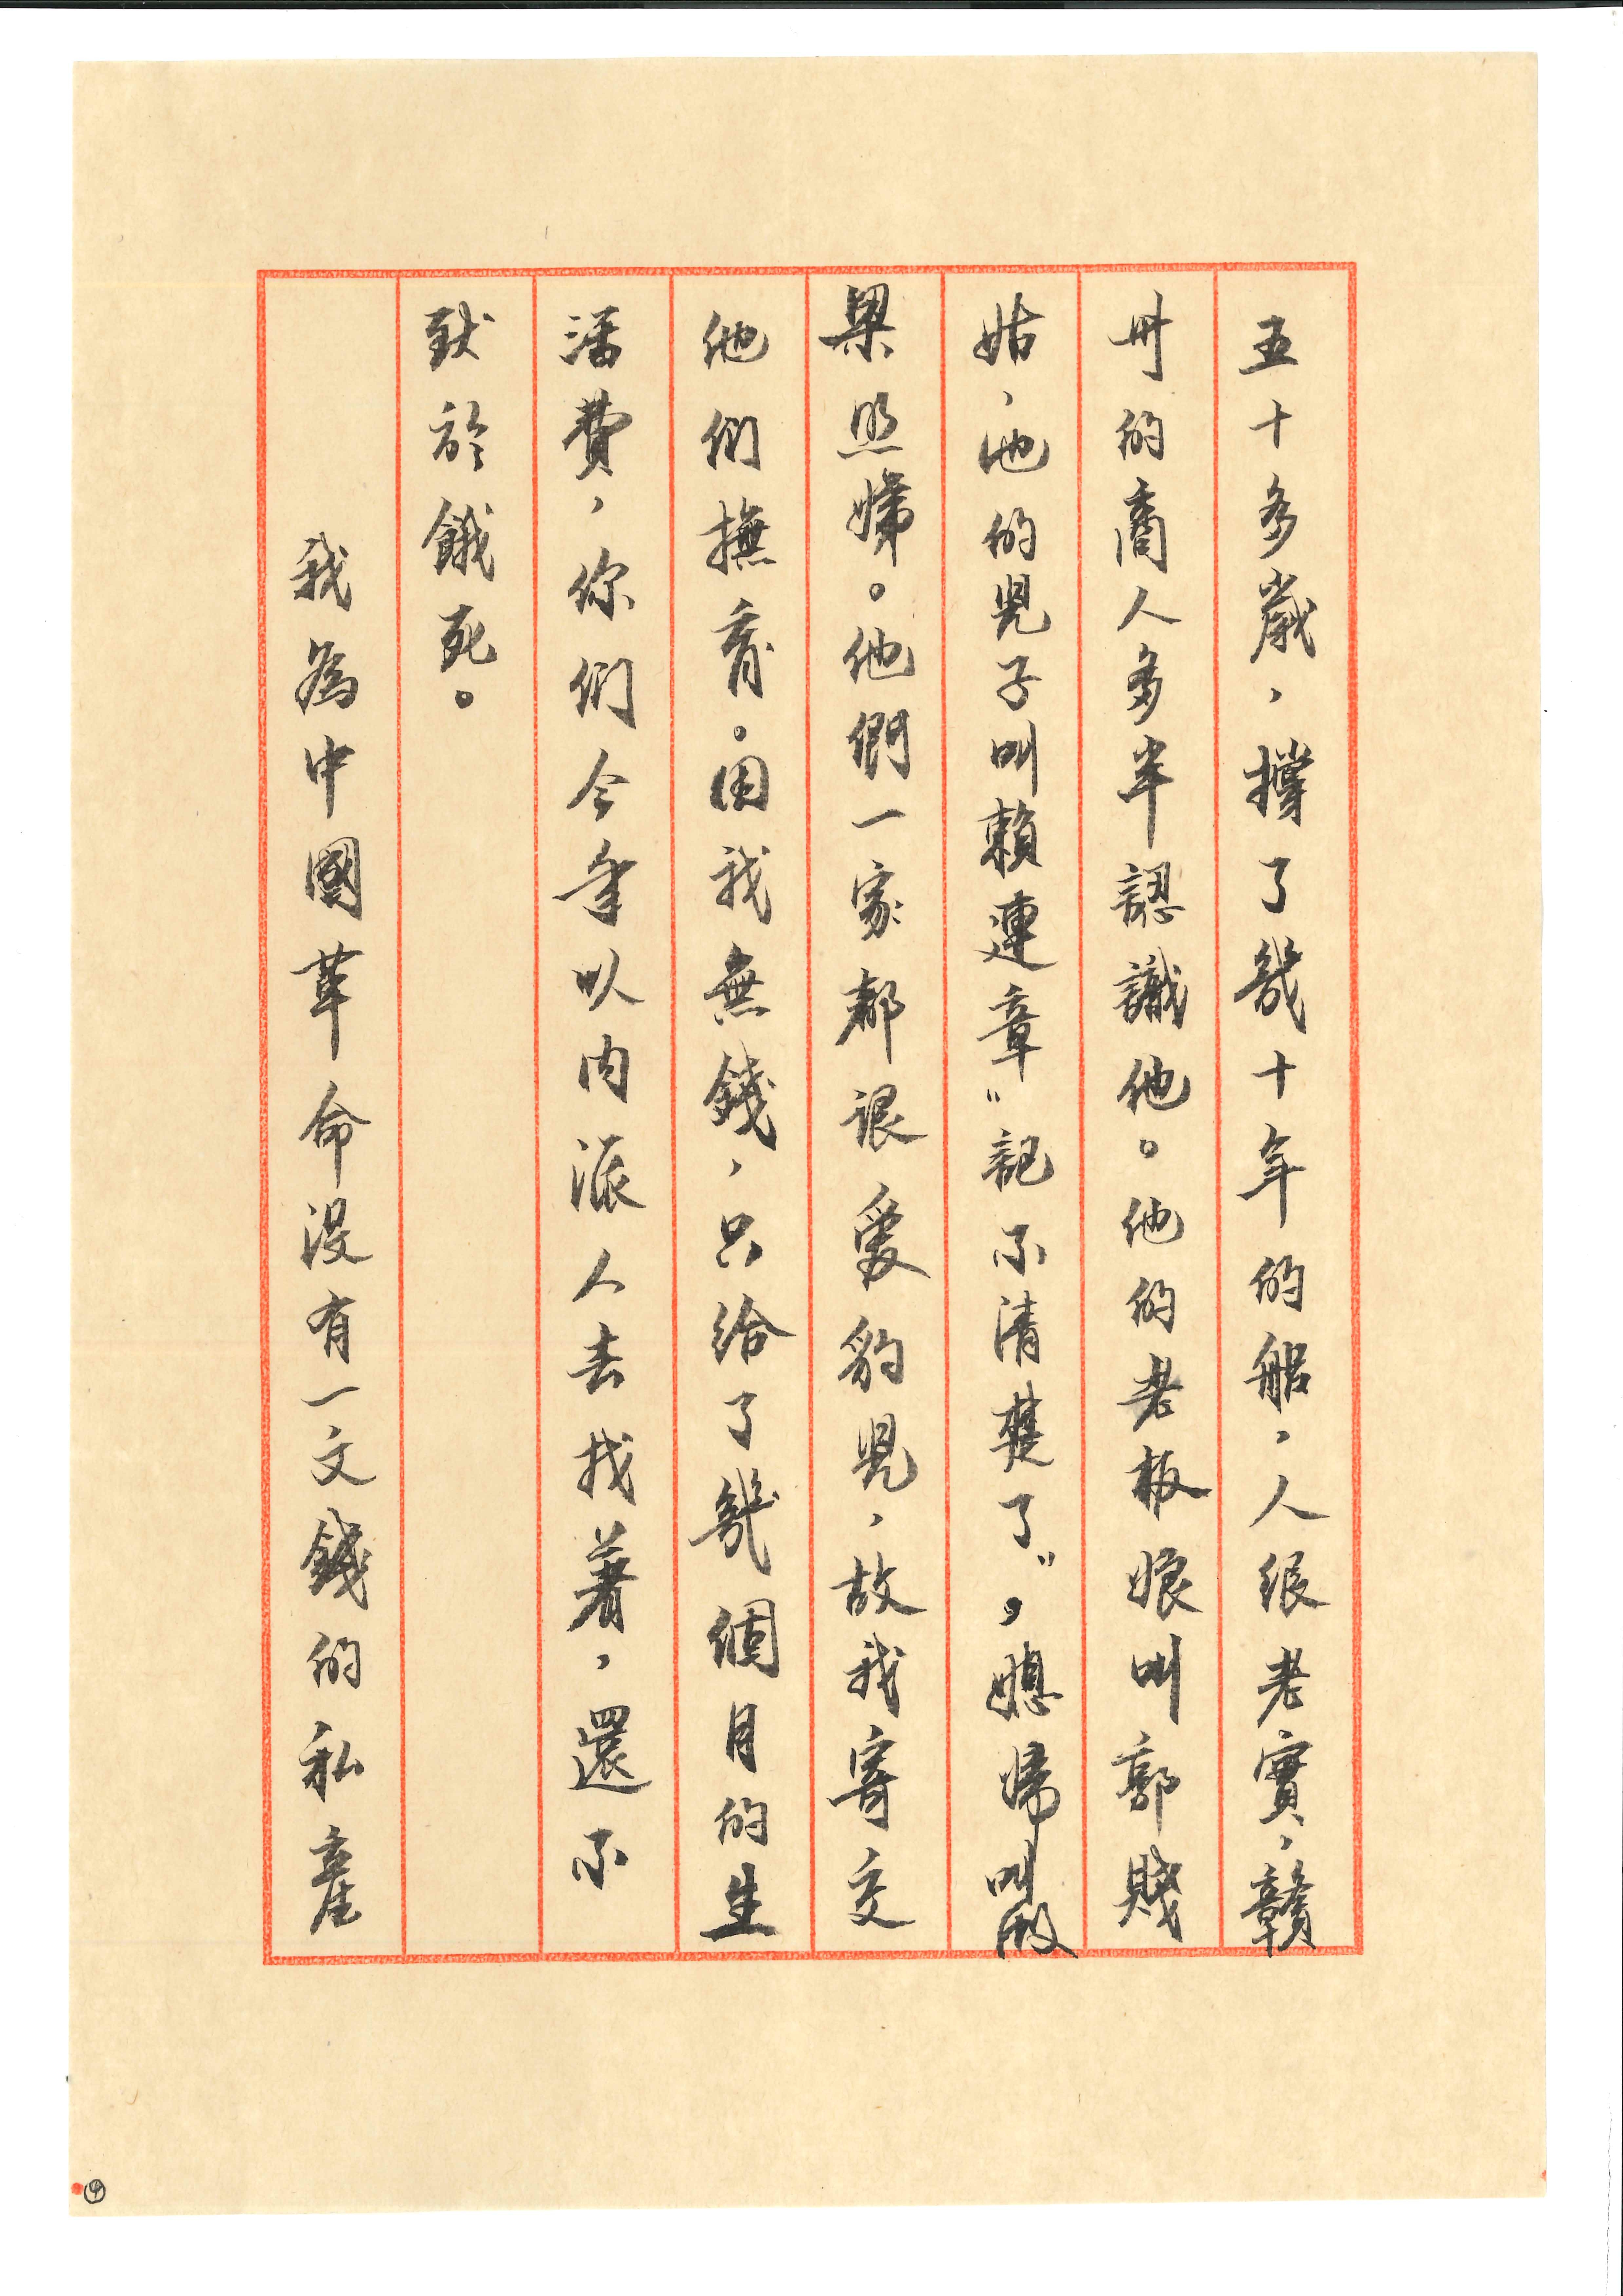 五十多歲，撐了幾十年的船，人很老實，贛
州的商人多半認識他。他的老板娘叫郭賤
姑，他的兒子叫賴連章"記不清楚了"，媳婦叫做
梁照娣。他們一家都很愛豹兒，故我寄交
他們撫育。因我無錢，只給了幾個月的生
活費，你們今年以內派人去找著，還不
致於餓死。
我為中國革命沒有一文錢的私產
④